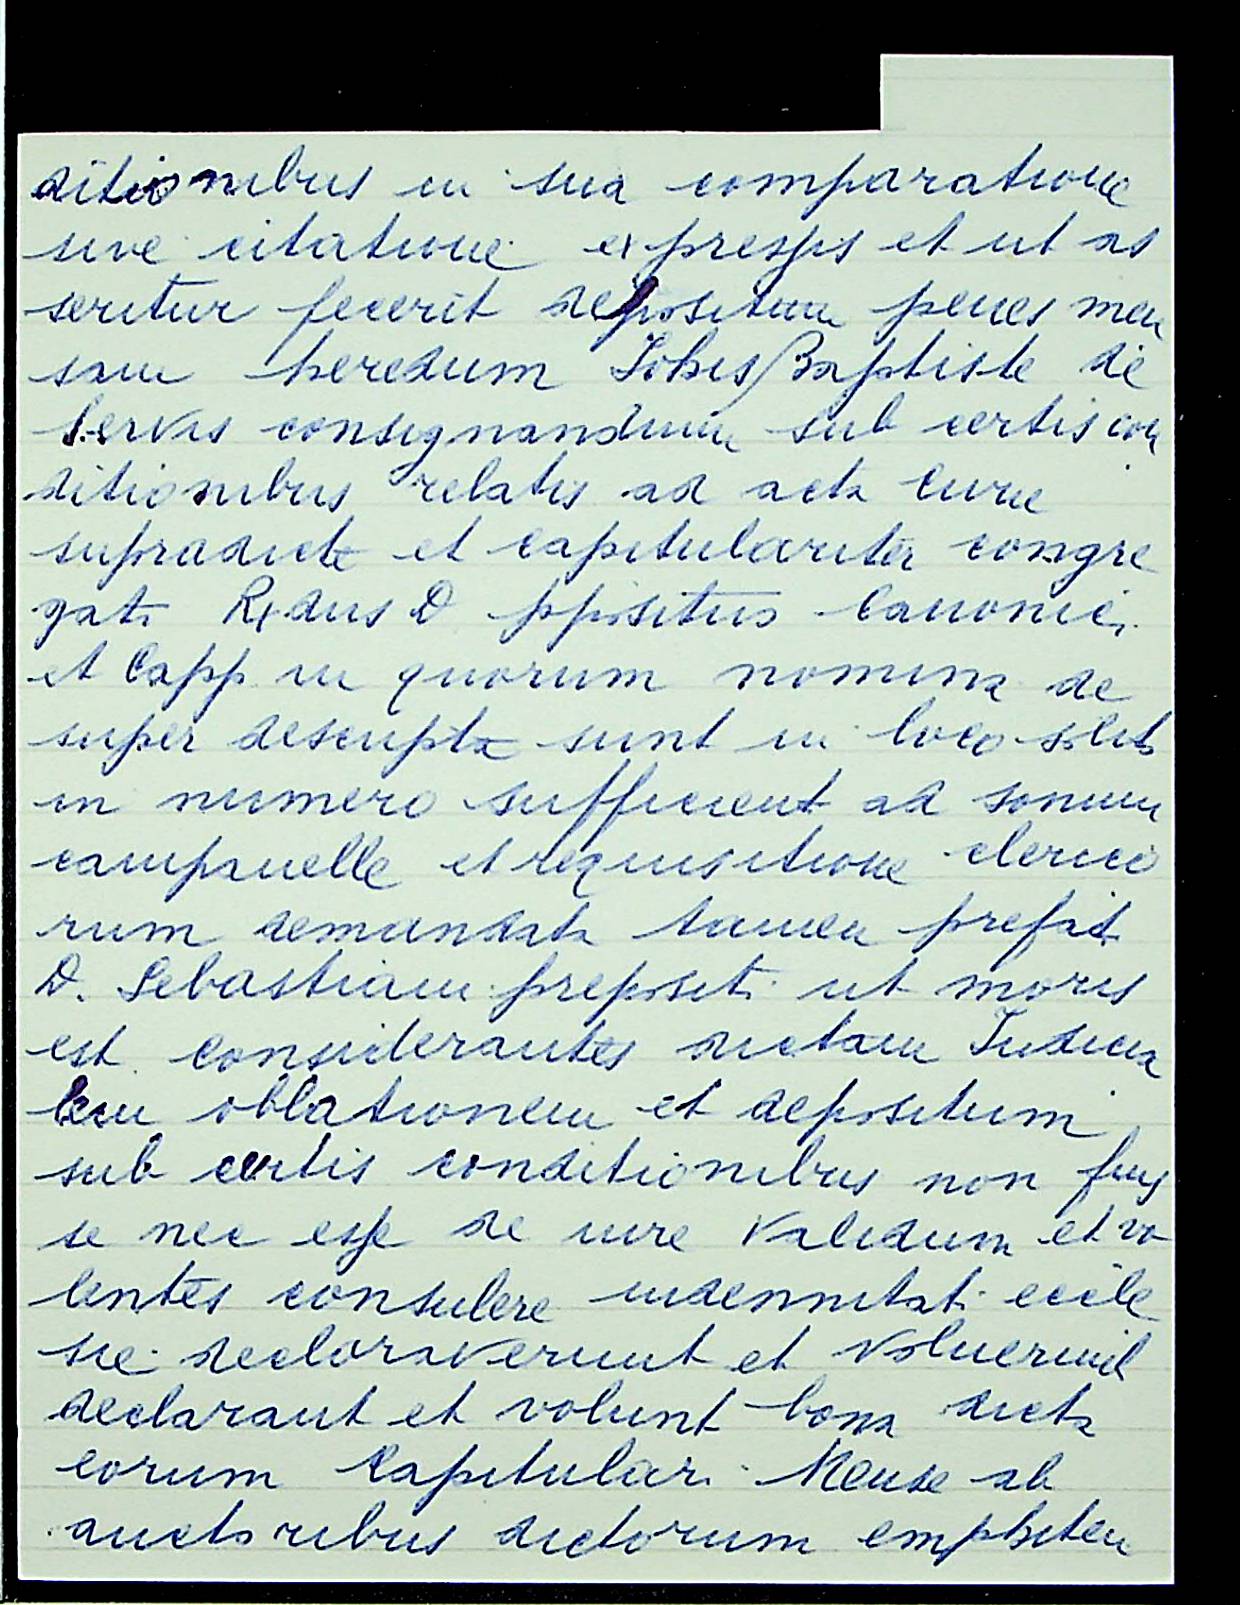 ditionibus in sua comparatione
sive citatione expressis et ut as
seritur fecerit depositum penes men
sam heredum Johis Baptiste de
Servis consignandum sub certis con
ditionibus relatis ad acta Curie
supradicte et capitulariter congre
gati Rx dus D ppisitus Canonici
et Capp in quorum nomina de
super descripta sunt in loco solito
in numero sufficient ad sonum
campanelle et requisitione clerico
rum demandata tamen prefat
D. Sebastiani preposit. ut moris
est considerantes dictam Judicia
lem oblationem et depositum
sub certis conditionibus non fuis
se nec esse de iure validum et vo
lentes consulere indennitati eccle
sie declaraverunt et voluerunt
declarant et volunt bona dicta
eorum Capitulari Mense ab
auctoribus dictorum emphiteu